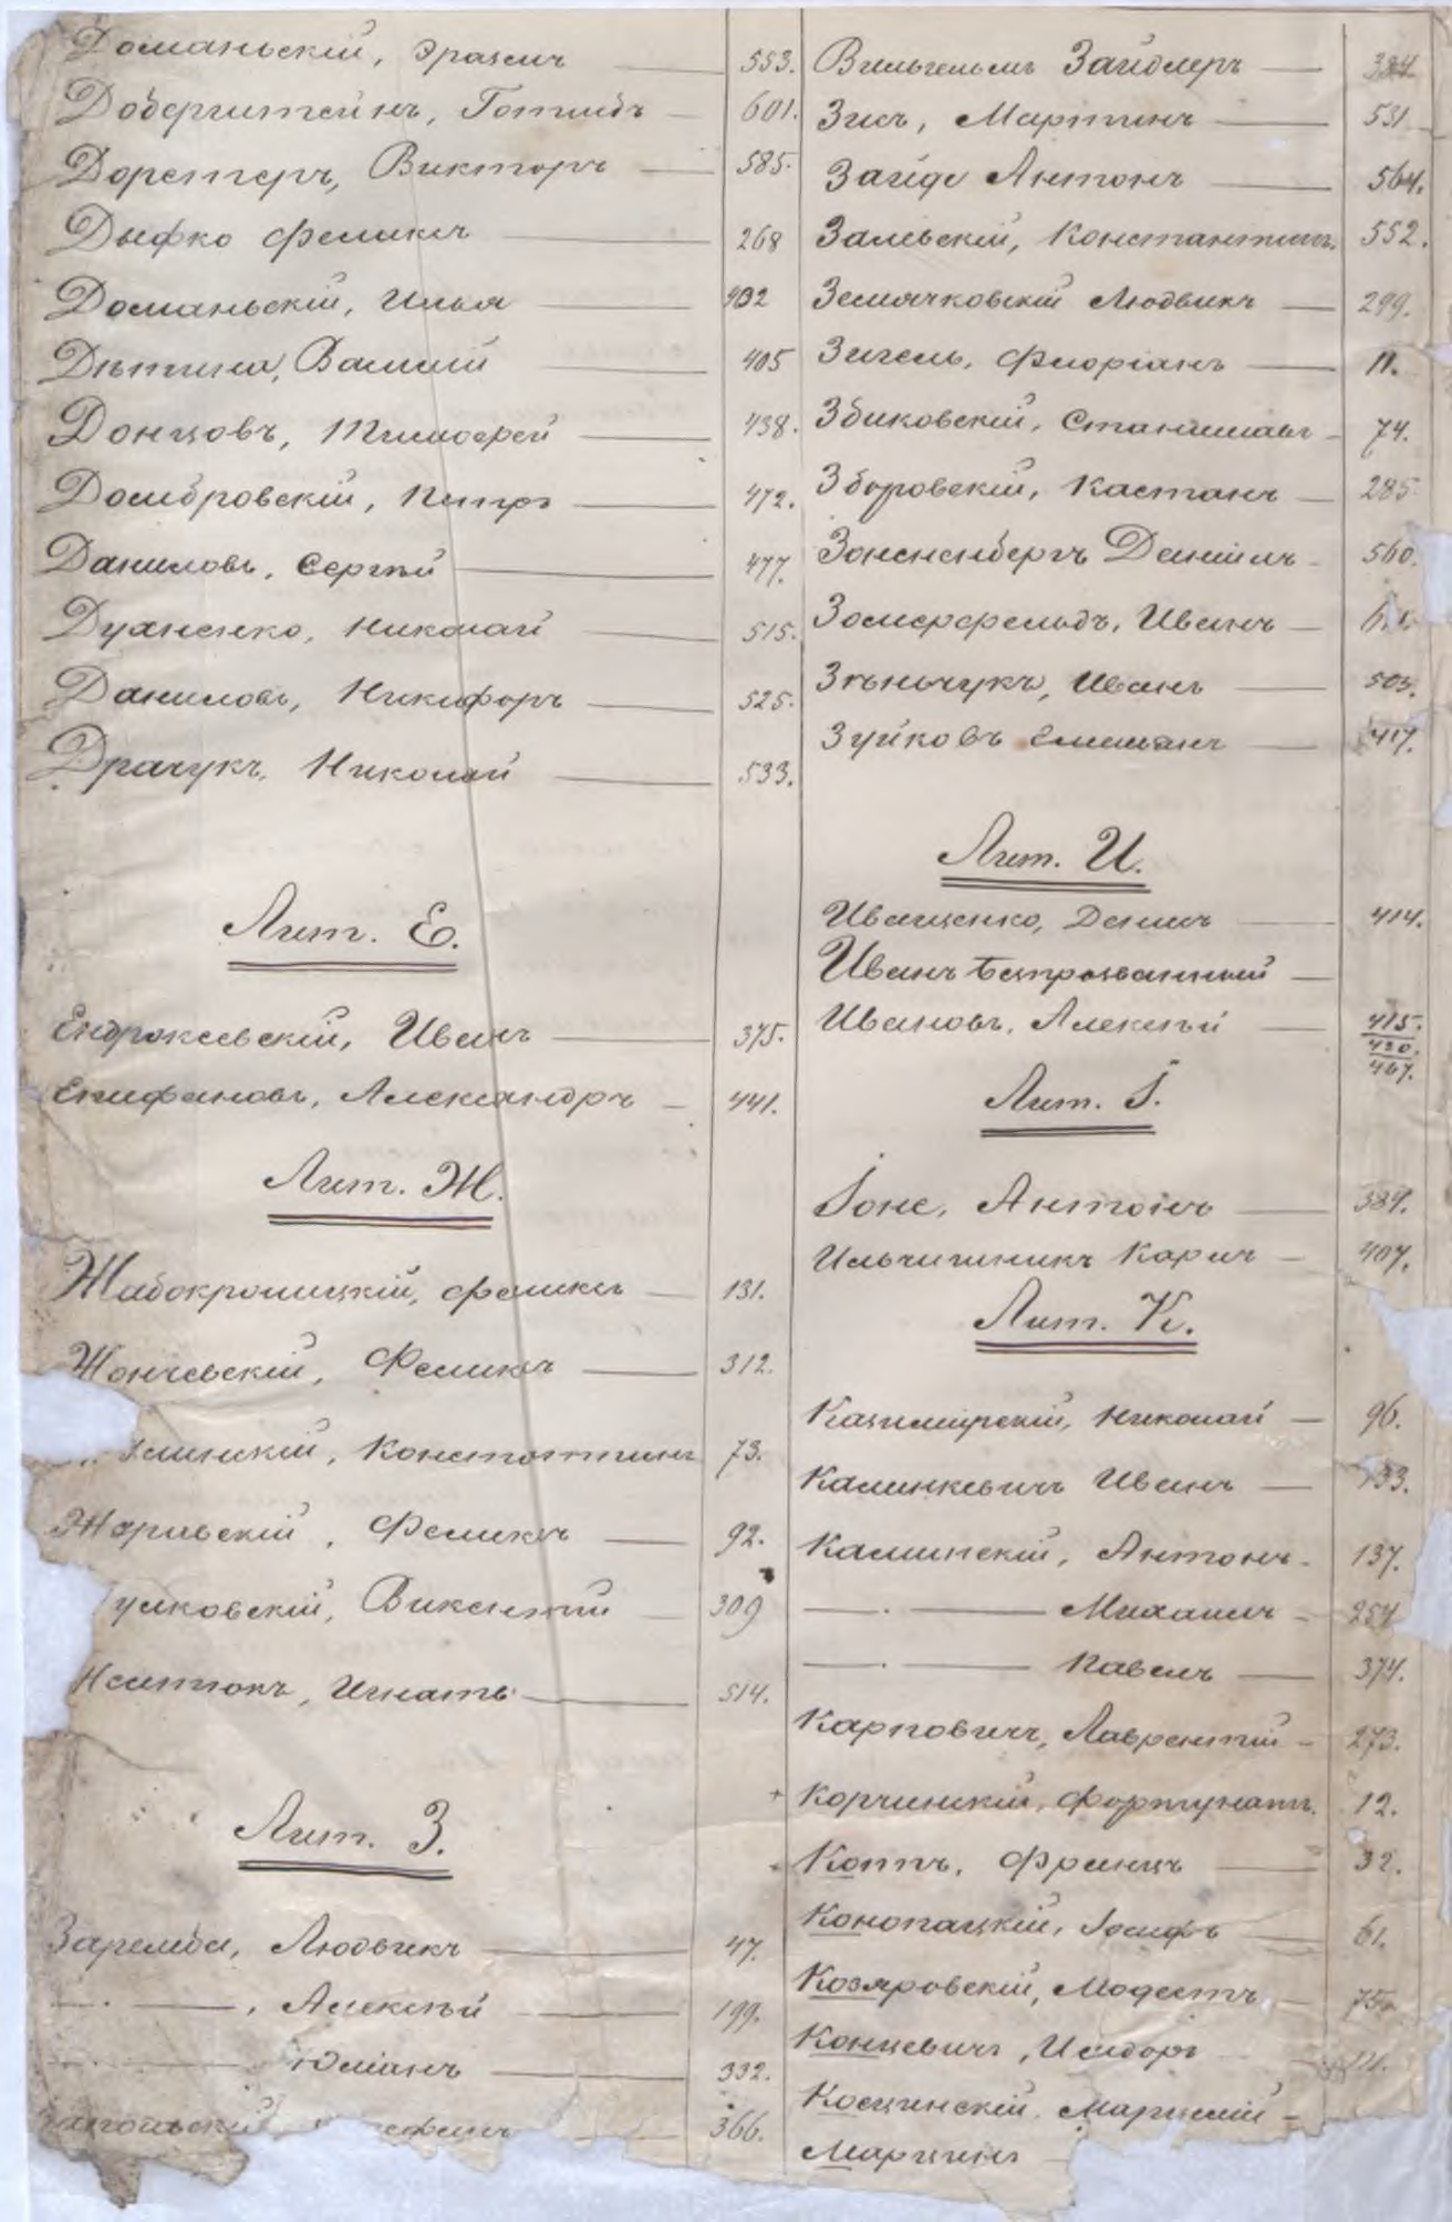 Доманьскій, Эразмъ 553.
Доберштейнъ, Готлибъ 601.
Дорстеръ, Викторъ 585.
Дыфко Феликсъ 268
Доманьскій, Илья 402
Дѣтина, Василій 405
Донцовъ, Тимофей 438.
Домбровскій, Петръ 472.
Даниловъ, Сергѣй 477.
Духненко, Николай 515.
Даниловъ, Никифоръ 525.
Драчукъ, Николай 533.
Лит. Е.
Ендржеевскій, Иванъ 375.
Епифановъ, Александръ 441.
Лит. Ж.
Жабокрошицкій, Феликсъ 131.
Жончевскій, Феликсъ 312.
Константинъ 73.
Феликсъ 92.
Викентій 309
Игнатъ 514.
Лит. З.
Заремба, Людвикъ 47.
— . —, Алексѣй 199.
— Юліанъ 332.
366.
Вильгельмъ Зайдлеръ 384
Зисъ, Мартинъ 531
Зайде Антонъ 564.
Залѣвскій, Константинъ 552.
Землячковскій Людвикъ 299.
Зигель, Флоріанъ 11.
Збиковскій, Станиславъ 74.
Зборовскій, Каетанъ 285
Зоненбергъ Даніилъ 560.
Зомерфельдъ, Иванъ
Зѣньчукъ, Иванъ 503.
Зуйковъ Емельянъ 417.
Лит. И.
Иващенко, Денисъ 414.
Иванъ безпрозванный
Ивановъ, Алексѣй 415.
420.
467.
Лит. І.
Іоне, Антонъ 389.
Ильчишникъ Карлъ 407.
Лит. К.
Казимірскій, Николай 96.
Калинкевичъ Иванъ 133.
Калинскій, Антонъ 137.
— . — Михаилъ 254
— . — Павелъ 374.
Карповичъ, Лаврентій 273.
+ Корчинскій, Фортунатъ 12.
+ Коттъ, Францъ 32.
Конопацкій, Іосифъ 61.
Козяровскій, Модестъ 75.
Концевичъ, Исидоръ
Косцинскій, Марцелій
Марцинъ